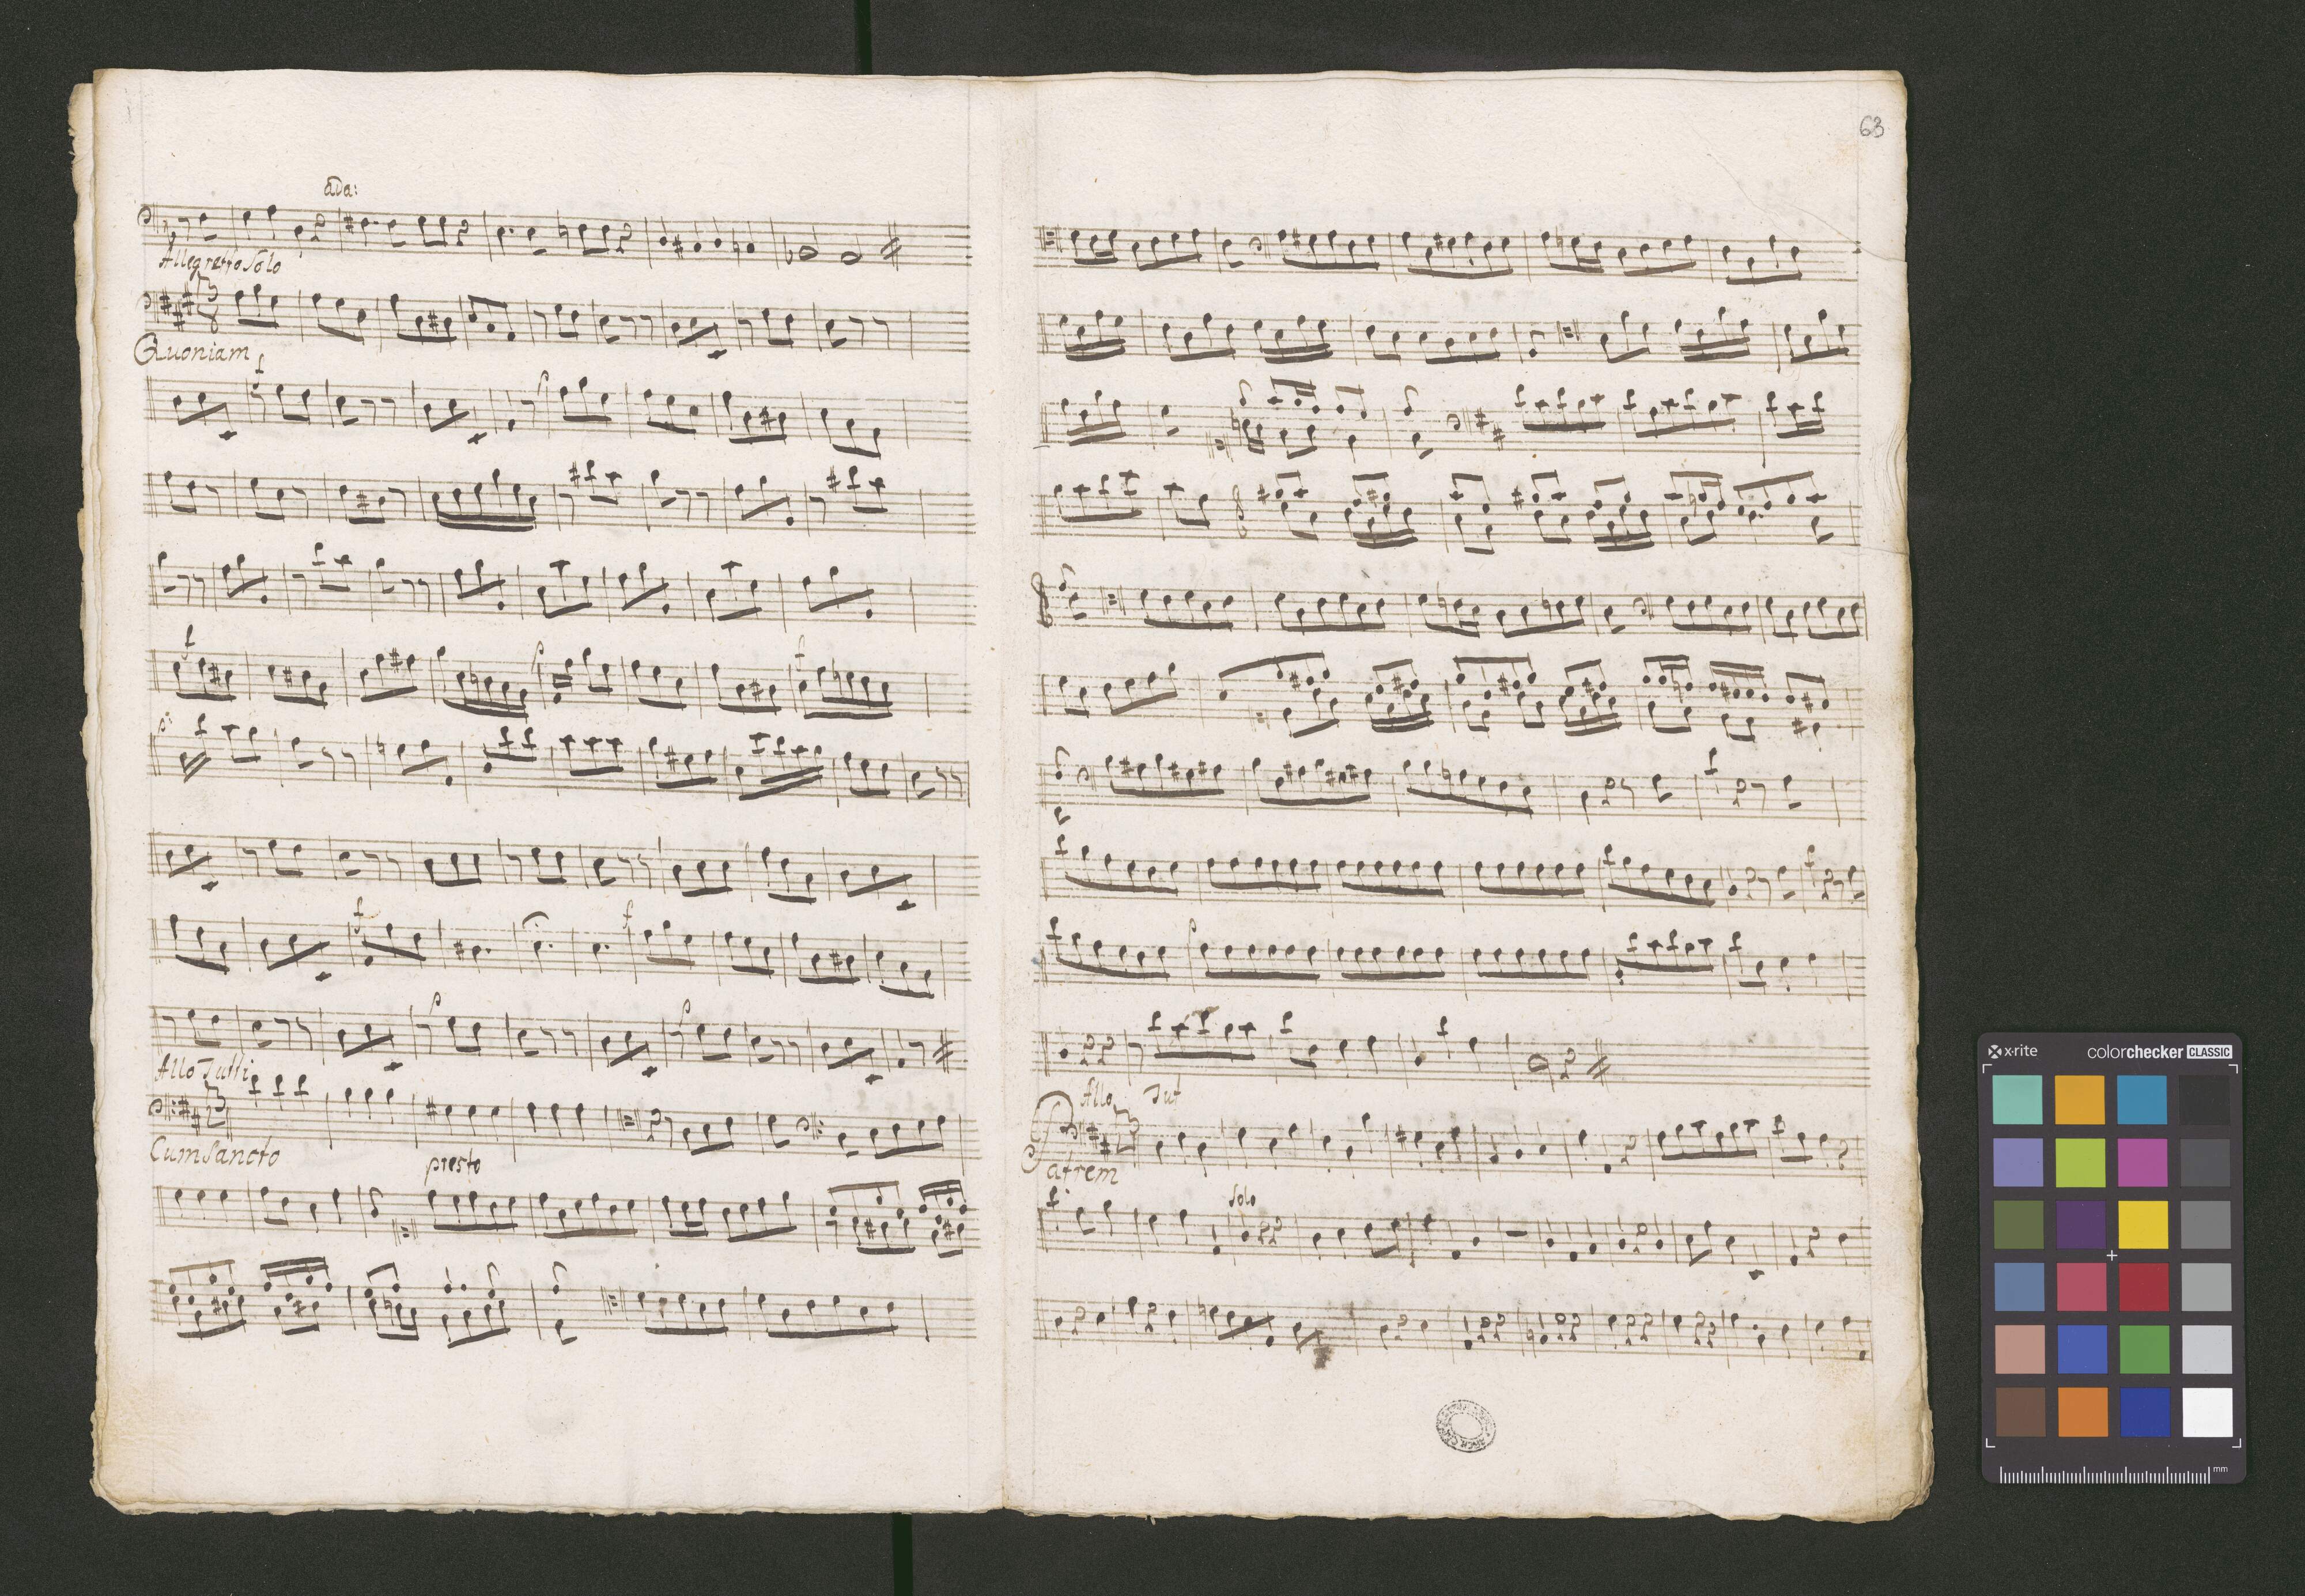 63
Allegretto Solo
Quoniam
Allo Tutti
Cum Sancto
presto
Allo Tut
Patrem
Solo
x-rite
colorchecker CLASSIC
mm